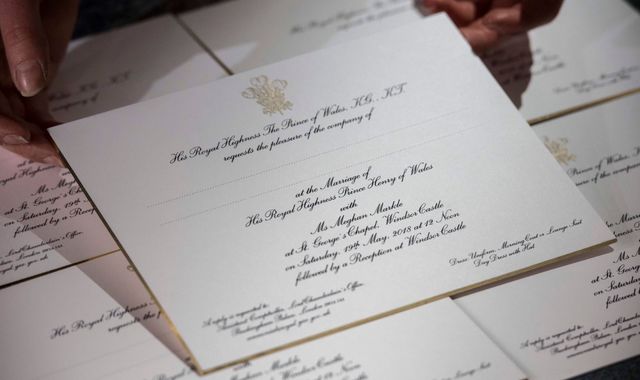 His Royal Highness The Prince of Wales, K.G., K.T.
requests the pleasure of the company of
at the Marriage of
His Royal Highness Prince Henry of Wales
with
Ms Meghan Markle
at St. George's Chapel, Windsor Castle
on Saturday, 19th May, 2018 at 12 Noon
followed by a Reception at Windsor Castle
A reply is requested to:
Assistant Comptroller, Lord Chamberlain's Office,
Buckingham Palace, London
Dress: Uniform, Morning Coat or Lounge Suit
Day Dress with Hat
K.G., K.T.
company of
Ms Meghan Markle
at St. George's Chapel,
on Saturday, 19th May,
followed by a Reception
His Royal Highness
requests the
Ms Meghan Markle
His Royal Highness
requests
Ms
at St. George's
on Saturday,
followed by a
A reply is requested to: